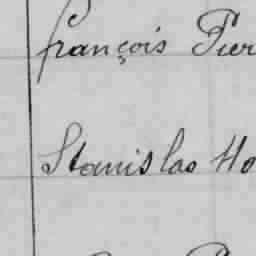 françois Pier
Stanislas Ho